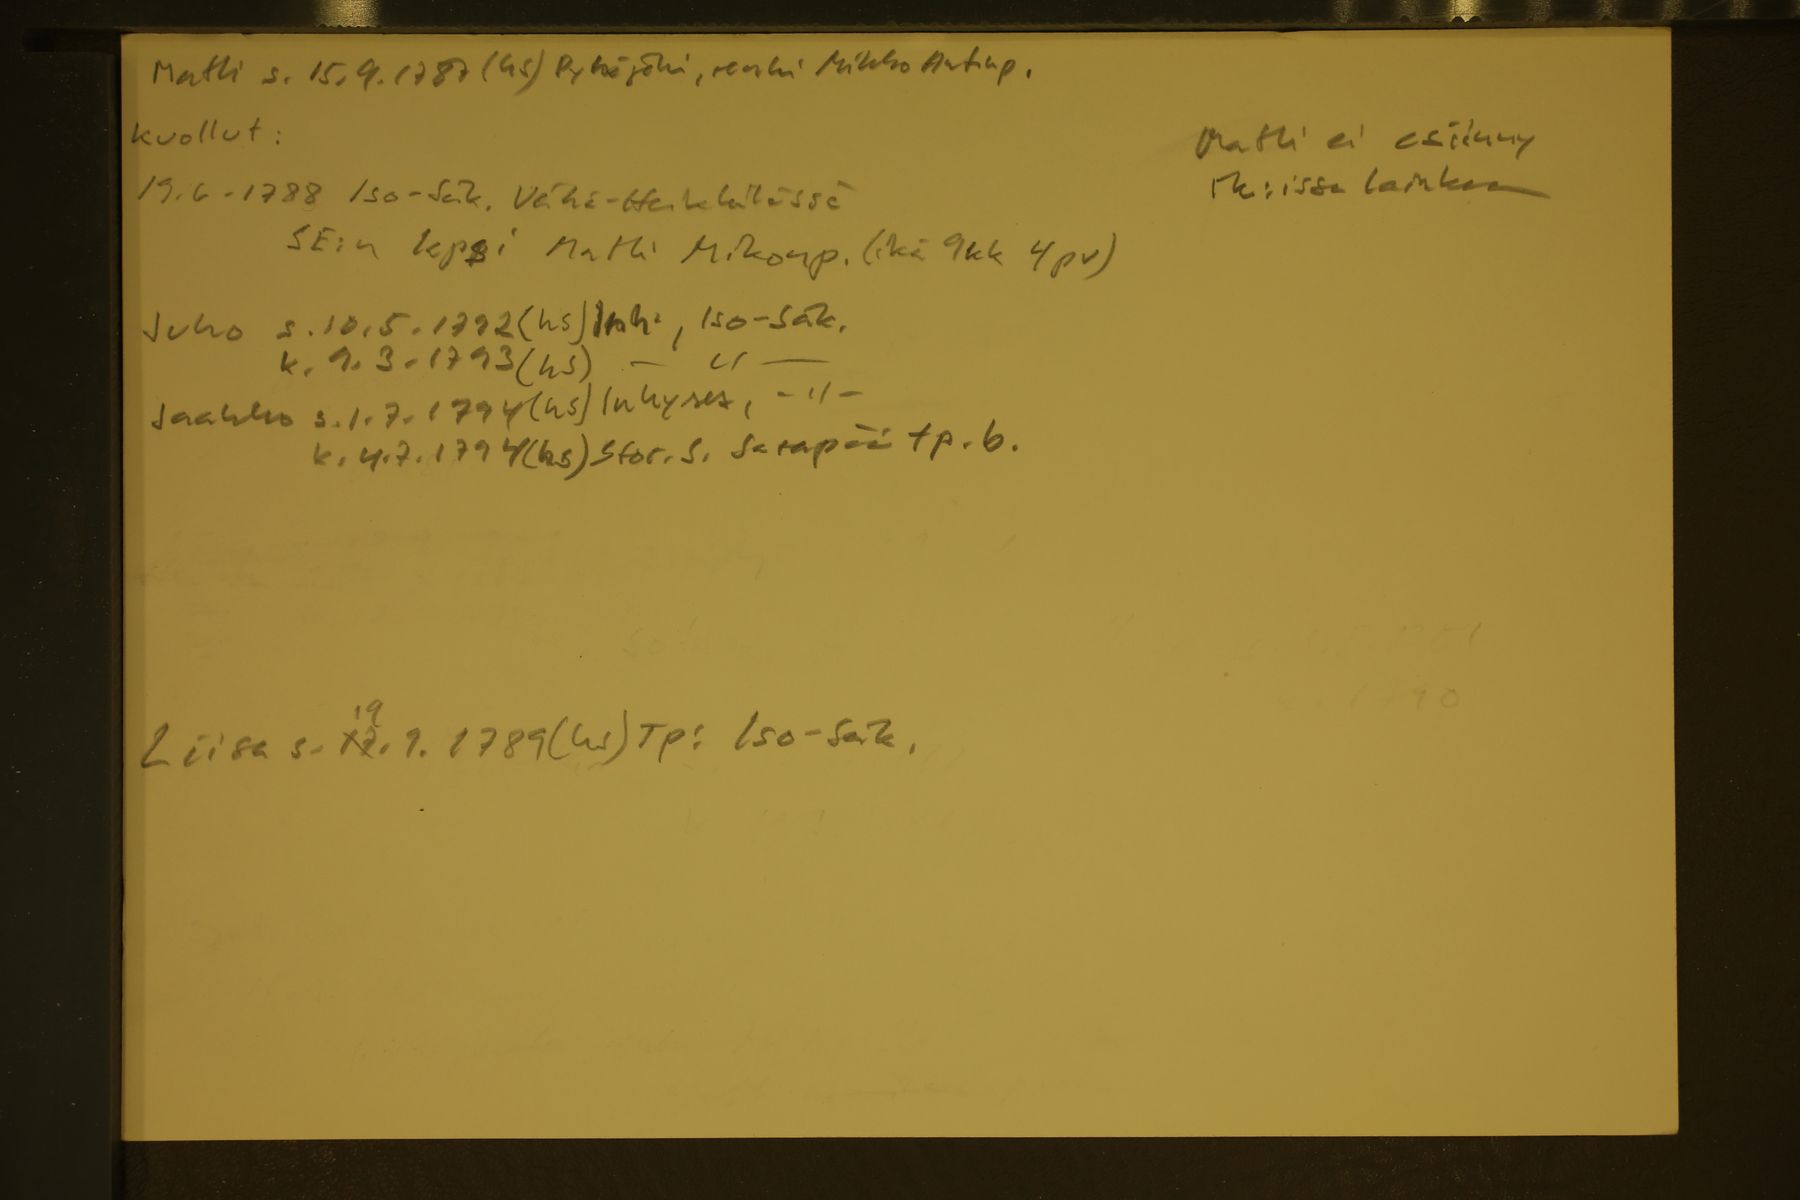 Matti s. 15.9.1787 (hs) Pyhäjoki, renki Mikko Antinp.
kuollut:
Matti ei esiinny
rk:issa lainkaan
19.6.1788 Iso-Säk. Vähä-Heikkilässä
SE:n lapsi Matti Mikonp. (ikä 9kk 4pv)
Juho s. 10.5.1792 (hs) Inh., Iso-Säk.
k. 9.3.1793 (hs) — " —
Jaakko s. 1.7.1794 (hs) Inhyses, - " -
k. 4.7.1794 (hs) Stor. S. Satapää tp. b.
19
Liisa s. 17.9.1789 (hs) Tp: Iso-Säk.